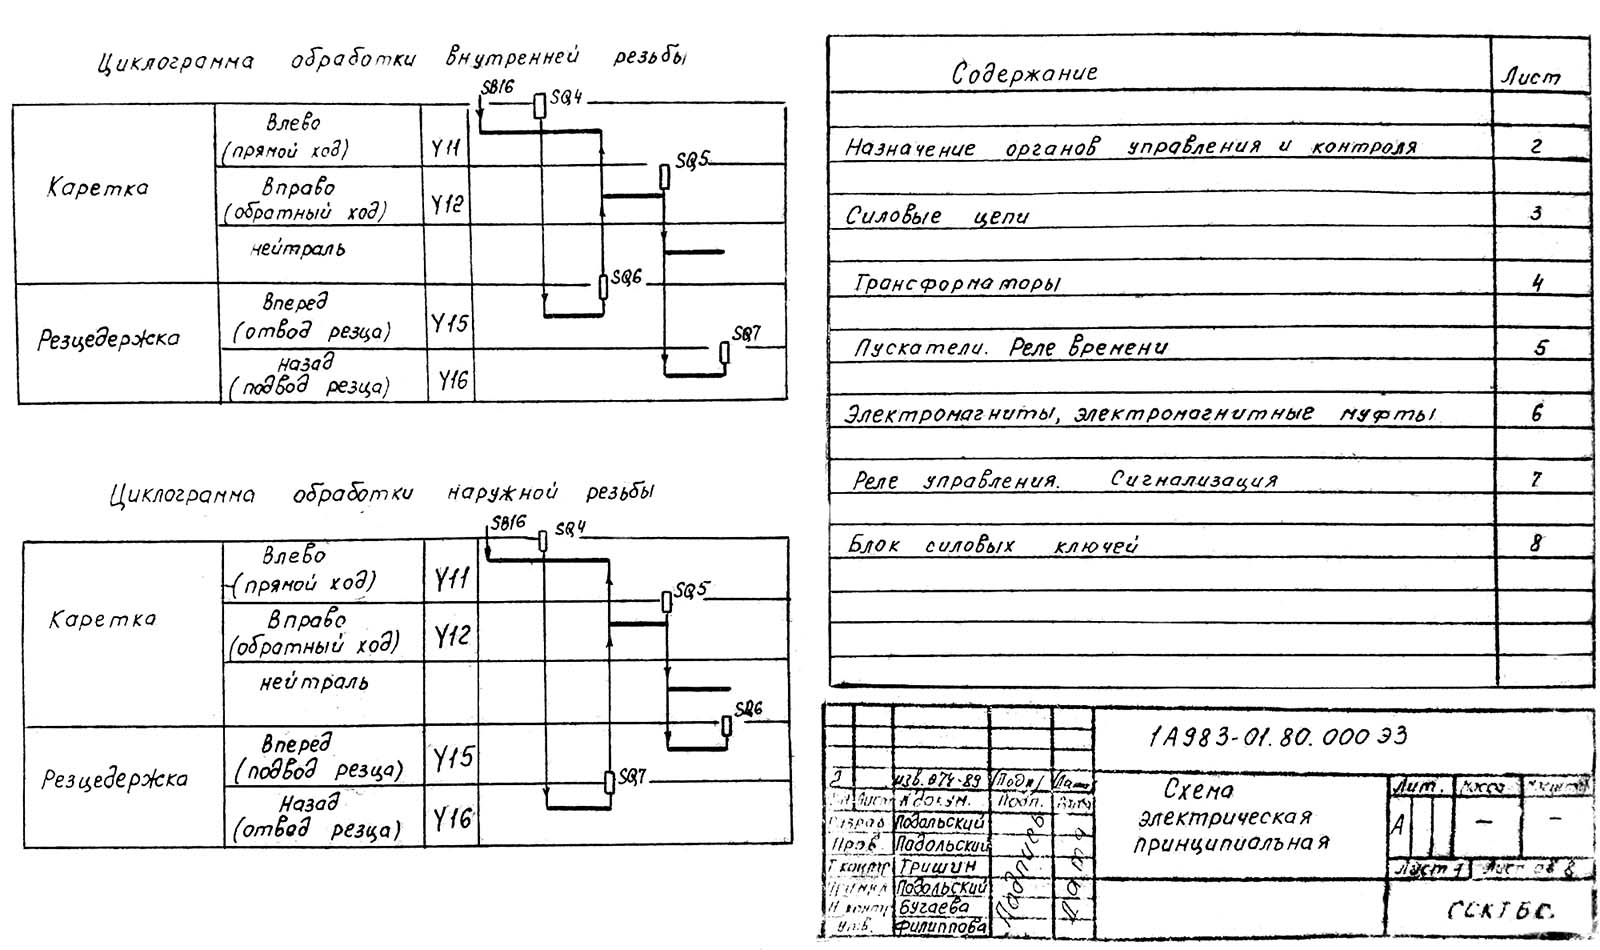 Циклограмма обработки внутренней резьбы
SB16 SQ4
Каретка
Влево
(прямой ход)
У11
SQ5
Вправо
(обратный ход)
У12
нейтраль
SQ6
Резцедержка
Вперед
(отвод резца)
У15
SQ7
Назад
(подвод резца)
У16
Циклограмма обработки наружной резьбы
SB16 SQ4
Каретка
Влево
(прямой ход)
У11
SQ5
Вправо
(обратный ход)
У12
нейтраль
SQ6
Резцедержка
Вперед
(подвод резца)
У15
SQ7
Назад
(отвод резца)
У16
Содержание Лист
Назначение органов управления и контроля 2
Силовые цепи 3
Трансформаторы 4
Пускатели. Реле времени 5
Электромагниты, электромагнитные муфты 6
Реле управления. Сигнализация 7
Блок силовых ключей 8
1А983-01.80.000 ЭЗ
изв. 074-89 Подп/ Дата
Лист № докум. Подп. Дата
Разраб Подольский
Пров. Подольский
Т контр Тришин
Подольский
Н контр Бугаева
Утв. Филиппова
Подпись
Дата
Схема
электрическая
принципиальная
Лит. Масса Масштаб
А — –
Лист 1 Листов 8
ССКТБС.